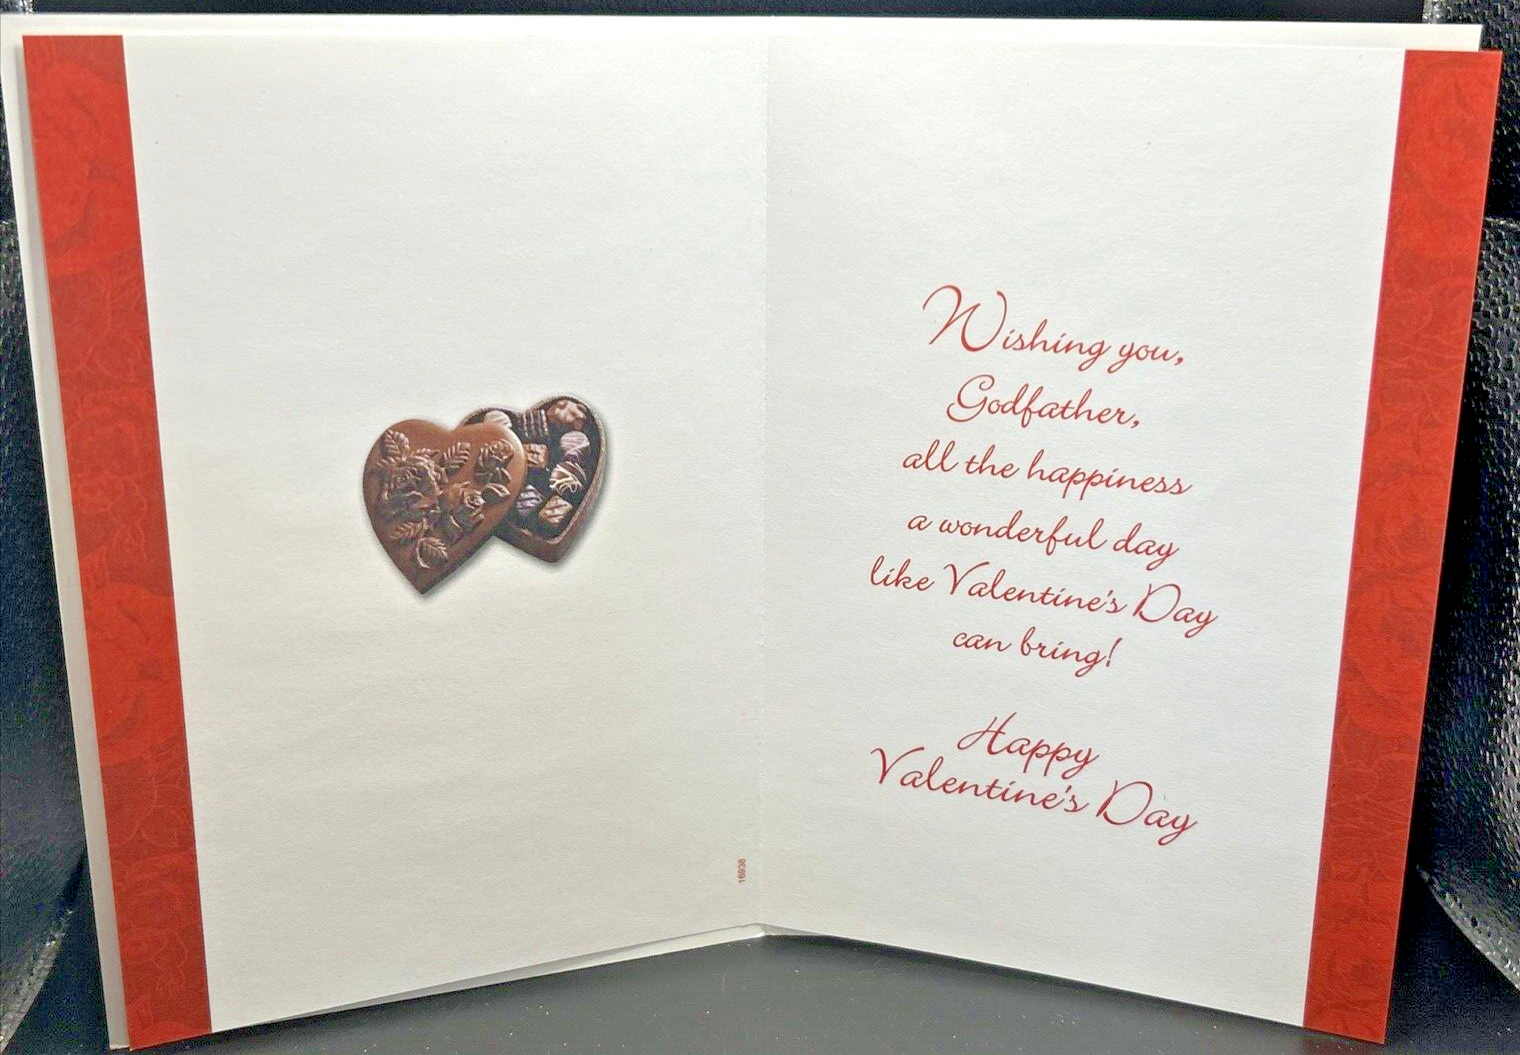 Wishing you,
Godfather,
all the happiness
a wonderful day
like Valentine's Day
can bring!
Happy
Valentine's Day
16938